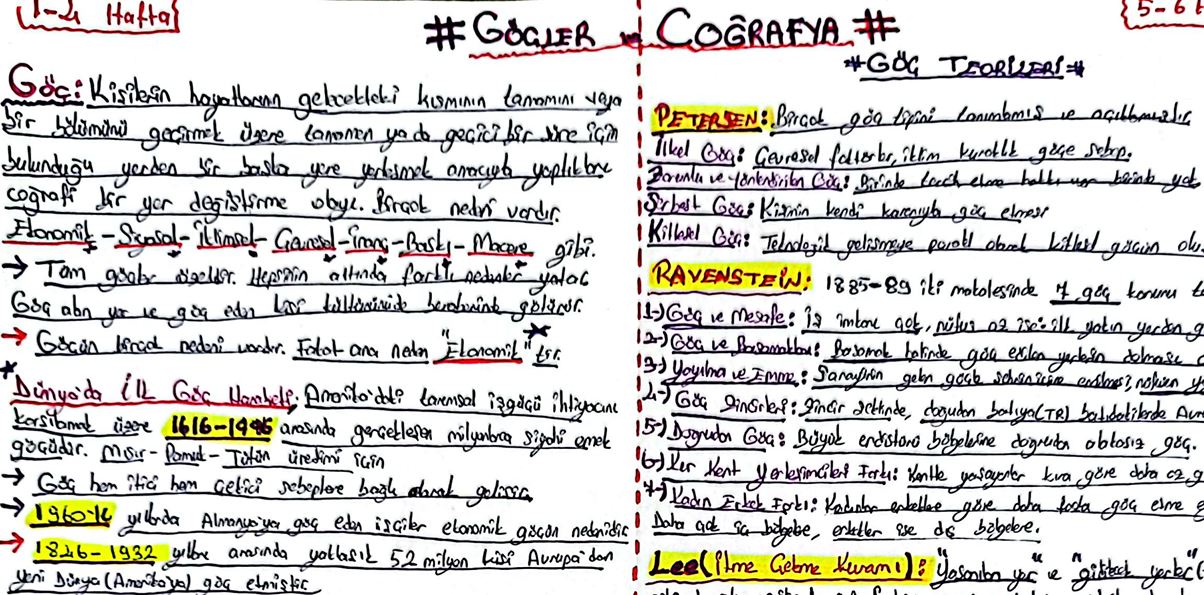 1-4 Hafta
5-6
# GÖÇLER ve COĞRAFYA #
Göç: Kişilerin hayatlarının gelecekteki kısmının tamamını veya
bir bölümünü geçirmek üzere tamamen ya da geçici bir süre için
bulunduğu yerden bir başka yere yerleşmek amacıyla yaptıkları
coğrafi bir yer değiştirme olayı. Birçok nedni vardır.
Ekonomik - Siyasal - İklimsel - Çevresel - inanç - Baskı - Macera gibi.
→ Tüm göçler özeldir. Hepsinin altında farklı nedenler yatar
Göç alan yer ve göç eden kişi kültürünüde beraberinde götürür.
→ Göçün birçok nedeni vardır. Fakat ana neden "Ekonomik" tir.
* Dünya'da İlk Göç Hareketi; Amerika'daki tarımsal işgücü ihtiyacını
karşılamak üzere arasında gerçekleşen milyonlarca siyahi emek
göçüdür. Mısır - Pamuk - Tütün üretimi için
→ Göç hem itici hem çekici sebeplere bağlı olarak gelişir.
→ yıllarda Almanya'ya göç eden işçiler ekonomik göçün nedenidir
→ 1826-1932 yılları arasında yaklaşık 52 milyon kişi Avrupa'dan
yeni Dünya (Amerika'ya) göç etmiştir
* GÖÇ TEORİLERİ *
PETERSEN: Birçok göç tipini tanımlamış ve açıklamıştır.
İlkel Göç: Çevresel faktörler, iklim kuraklık göçe sebep.
Zorunlu ve Yönlendirilen Göç: Birinde tercih etme hakkı var birinde yok
Serbest Göç: Kişinin kendi kararıyla göç etmesi
Kitlesel Göç: Teknolojik gelişmeye paralel olarak kitlesel göçün
RAVENSTEİN: 1885-89 iki makalesinde 7 göç kanunu
1-) Göç ve Mesafe: İş imkanı çok, nüfus az ise ilk yakın yerden
2-) Göç ve Basamakları: Basamak halinde göç edilen yerlerin dolması
3-) Yayılma ve Emme: Sanayinin gelen göçle
4-) Göç Zincirleri: Zincir şeklinde, doğudan batıya (TR) batıdakilerde
5-) Doğrudan Göç: Büyük endüstri bölgelerine doğrudan aktarısız göç.
6-) Kır Kent Yerleşimcileri Farkı: Kentte yaşayanlar kıra göre daha az
7-) Kadın Erkek Farkı: Kadınlar erkeklere göre daha fazla göç etme
Daha çok iç bölgelere, erkekler ise dış bölgelere.
Lee (İtme Çekme Kuramı): "Yaşanılan yer" ve "gidilecek yerler"